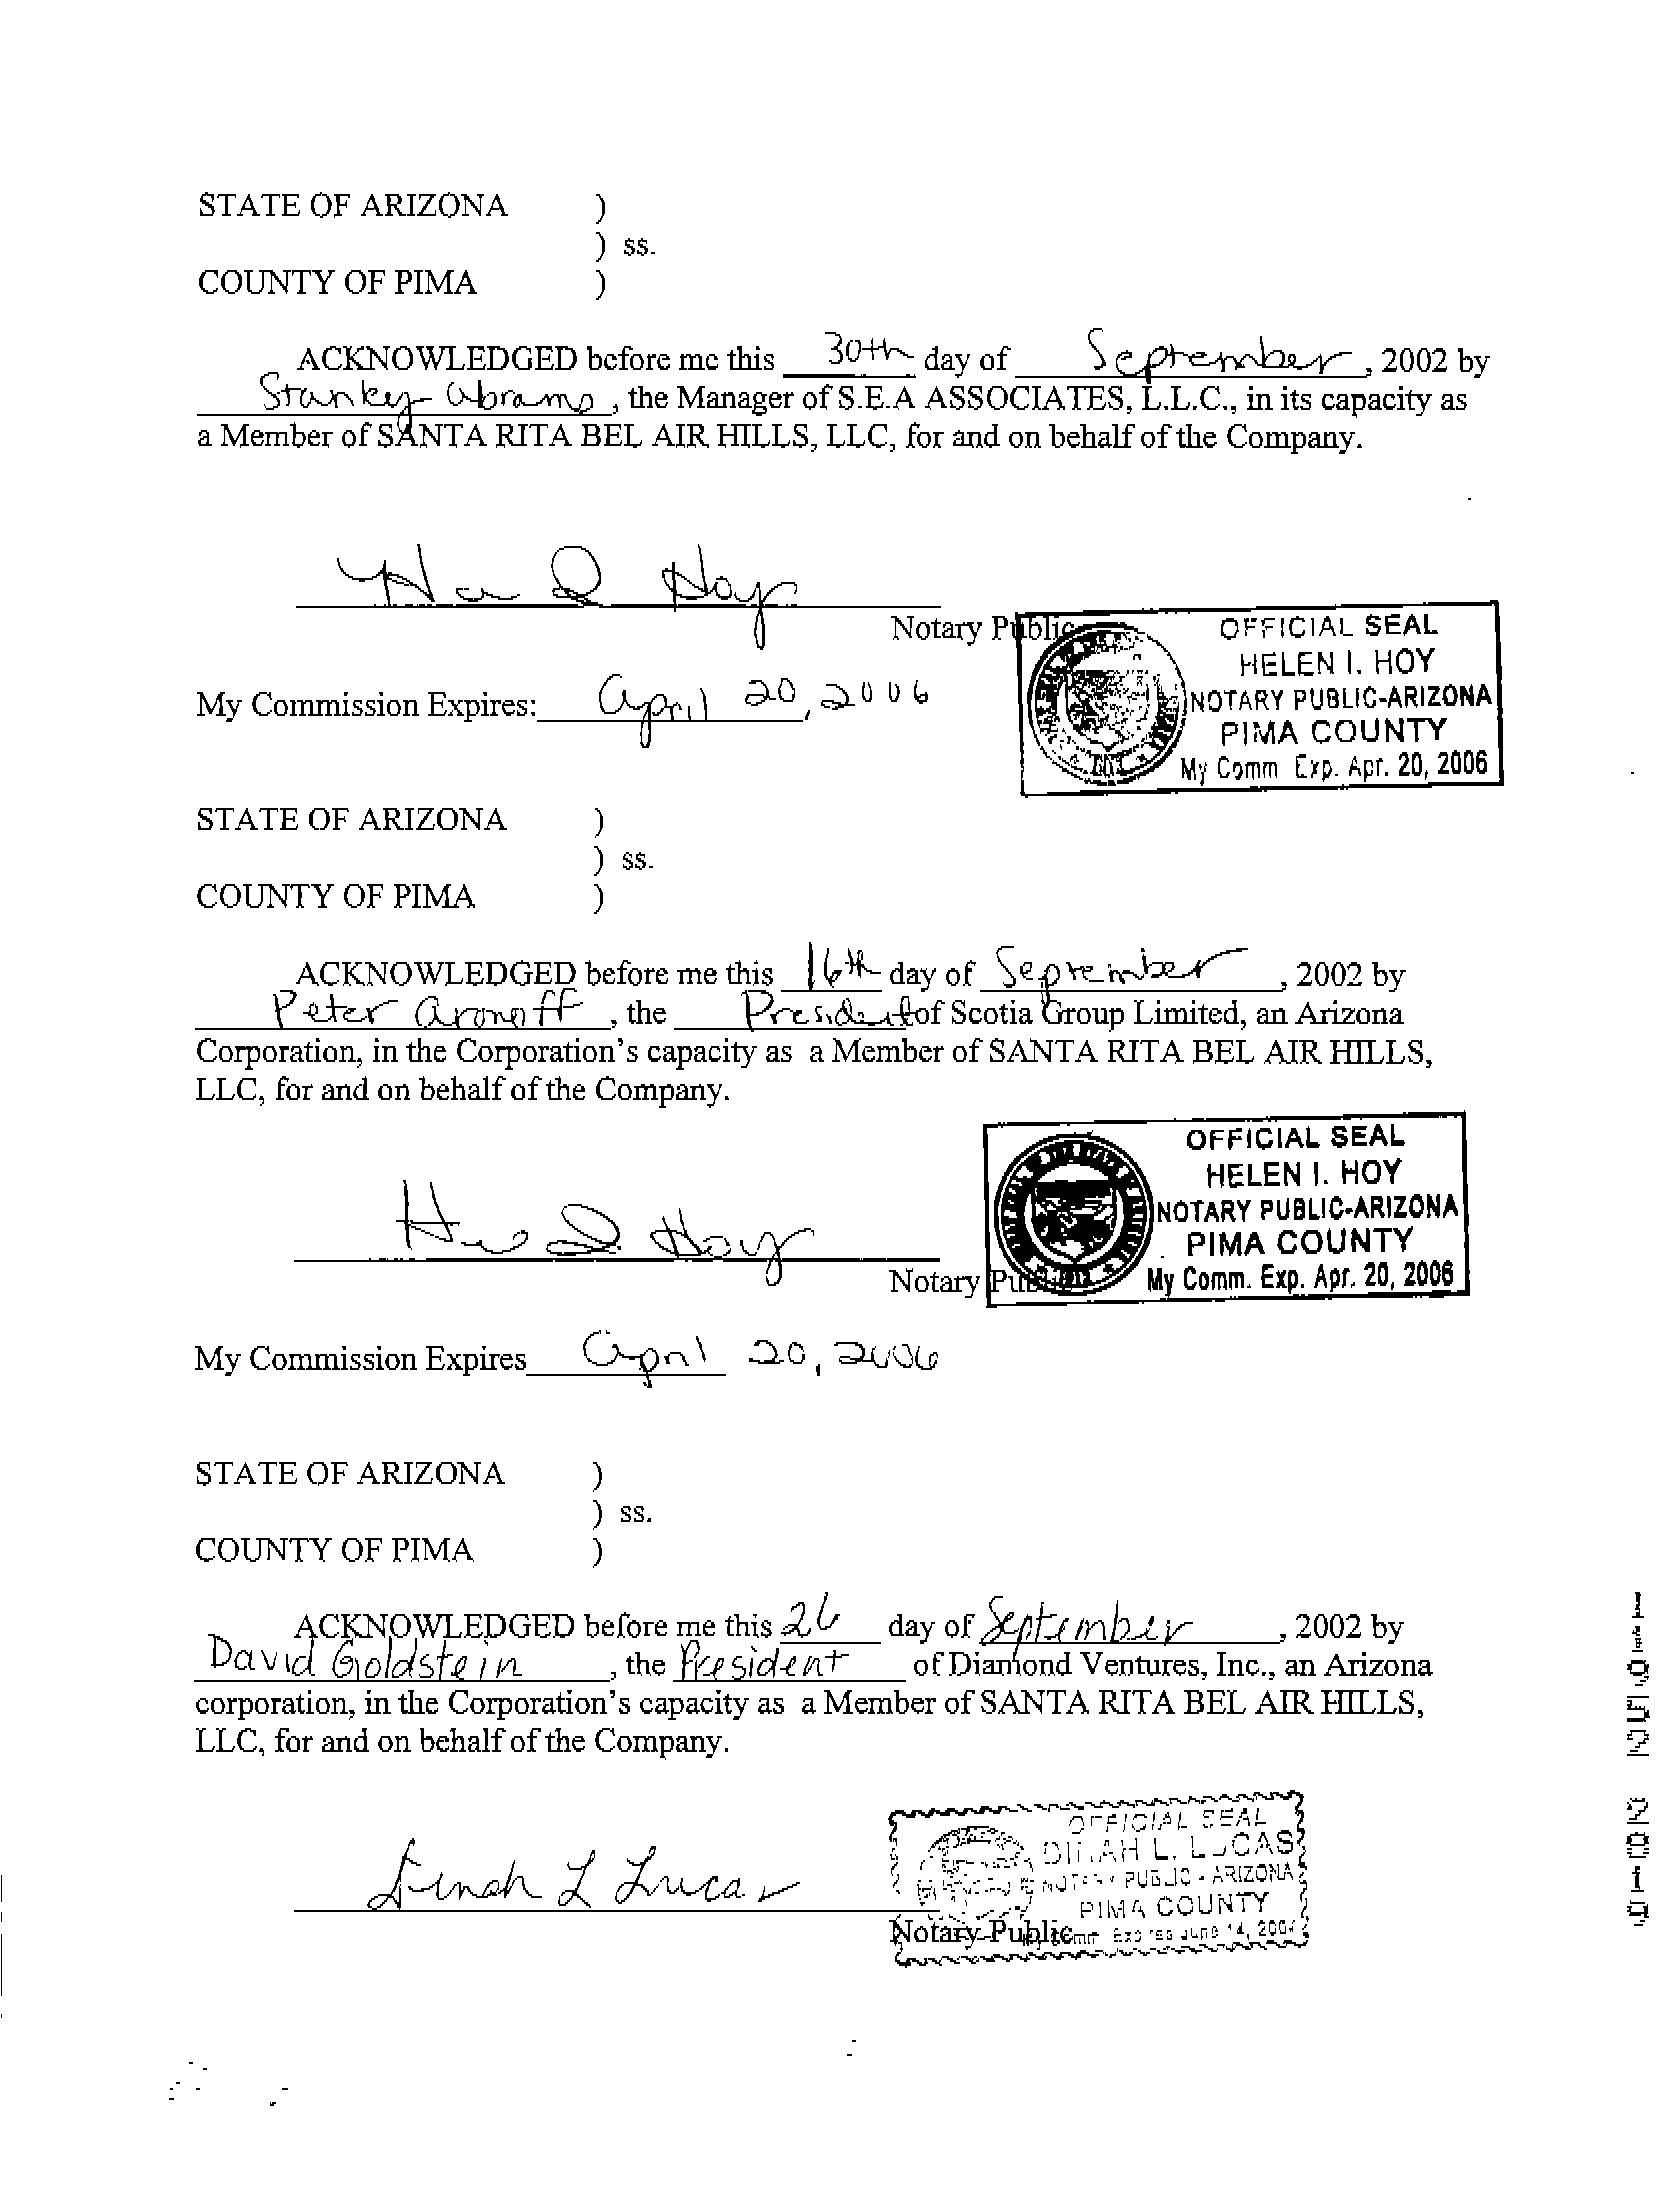 STATE OF ARIZONA )
) ss.
COUNTY OF PIMA )
ACKNOWLEDGED before me this 30th day of September, 2002 by
Stanley Abrams, the Manager of S.E.A ASSOCIATES, L.L.C., in its capacity as
a Member of SANTA RITA BEL AIR HILLS, LLC, for and on behalf of the Company.
Hoy
Notary Public
OFFICIAL SEAL
HELEN I. HOY
NOTARY PUBLIC-ARIZONA
PIMA COUNTY
My Comm Exp. Apr. 20, 2006
My Commission Expires: April 20, 2006
STATE OF ARIZONA )
) ss.
COUNTY OF PIMA )
ACKNOWLEDGED before me this 16th day of September, 2002 by
Peter Aronoff, the President of Scotia Group Limited, an Arizona
Corporation, in the Corporation's capacity as a Member of SANTA RITA BEL AIR HILLS,
LLC, for and on behalf of the Company.
OFFICIAL SEAL
HELEN I. HOY
NOTARY PUBLIC-ARIZONA
PIMA COUNTY
My Comm. Exp. Apr. 20, 2006
Hoy
Notary Public
My Commission Expires April 20, 2006
STATE OF ARIZONA )
) ss.
COUNTY OF PIMA )
ACKNOWLEDGED before me this 26 day of September, 2002 by
David Goldstein, the President of Diamond Ventures, Inc., an Arizona
corporation, in the Corporation's capacity as a Member of SANTA RITA BEL AIR HILLS,
LLC, for and on behalf of the Company.
Dinah L Lucas
Notary Public
OFFICIAL SEAL
DINAH L. LUCAS
NOTARY PUBLIC - ARIZONA
PIMA COUNTY
Comm Expires June 14,